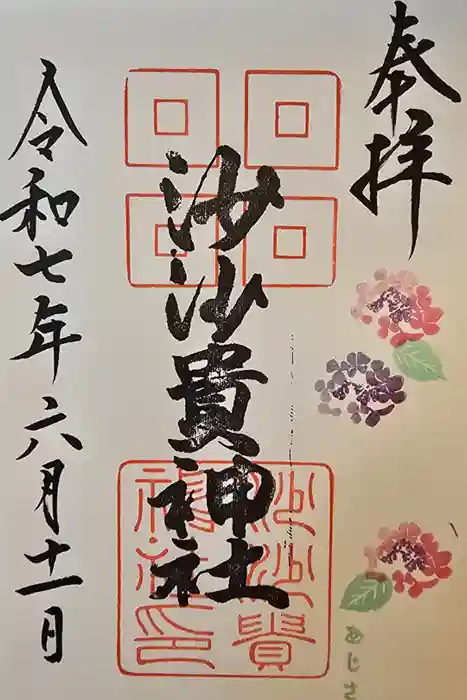 奉拝
沙沙貴神社
令和七年六月十一日
沙沙貴
神社印
あじさ